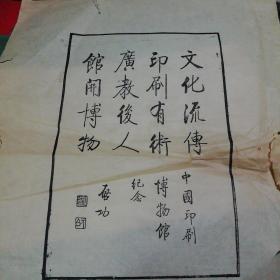 文化流傳
印刷有術
廣教後人
館開博物
中國印刷
博物館
紀念
啓功